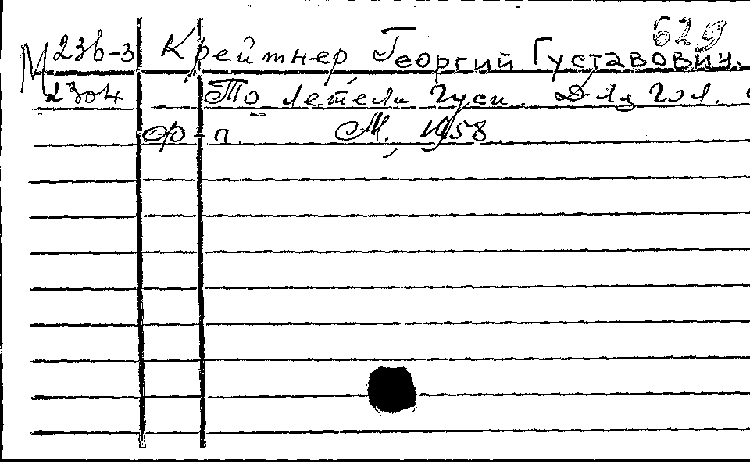 629
М 236-3 Крейтнер Георгий Густавович.
2304 То летели гуси. Для гол. с
ф-п. М., 1958